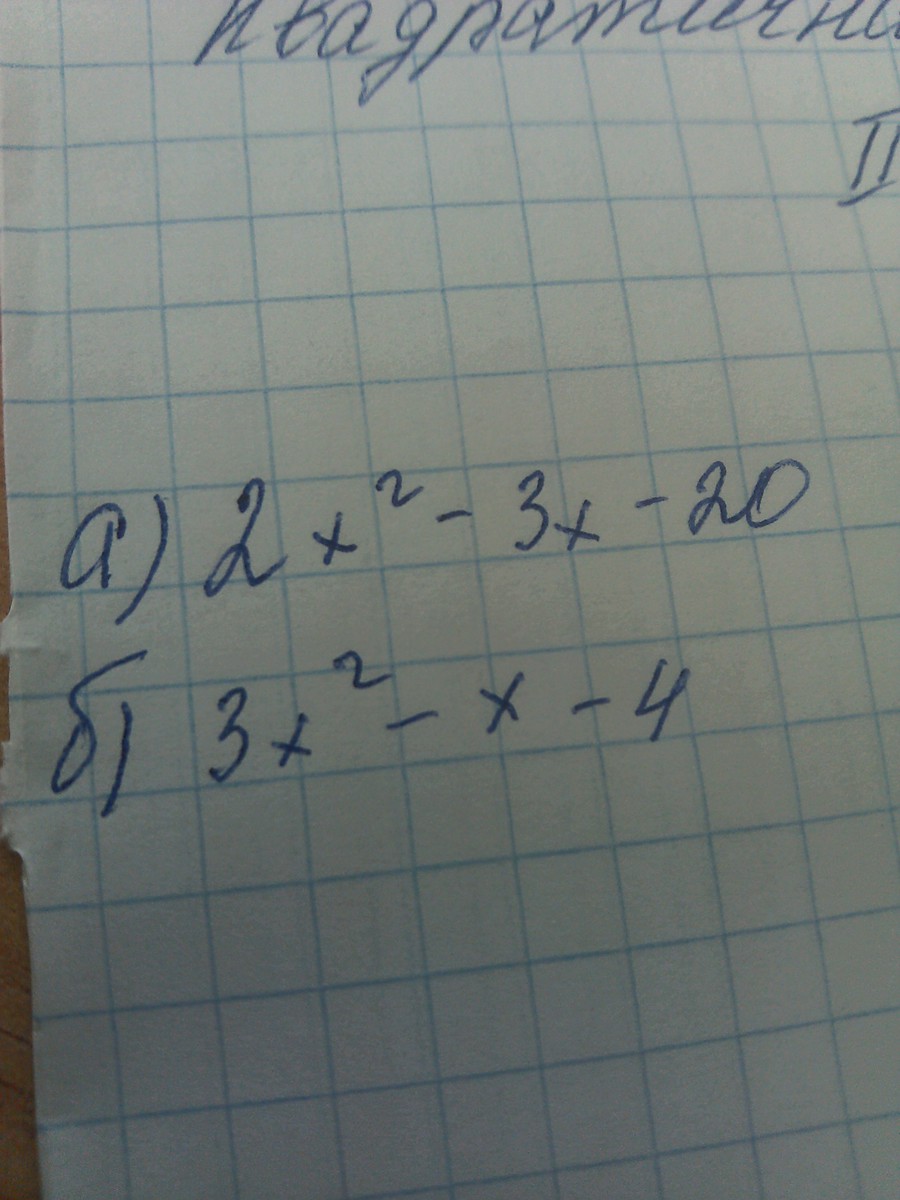 Квадратична
II
а) 2x² - 3x - 20
б) 3x² - x - 4